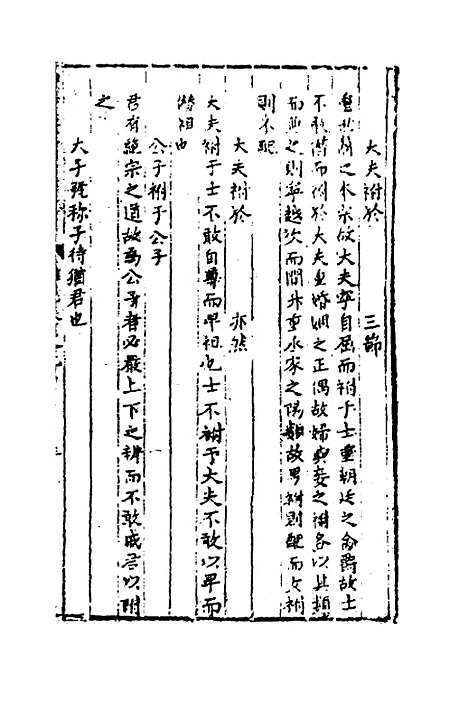 大夫祔於 三節
重世之本宗故大夫寧自屈而祔于士重朝廷之爵故士
不敢僭而祔於大夫重婚姻之正偶故婦與妾之祔各以其類
而無之則寧越次而間升重家之陽類故男祔則配而女祔
則不配
大夫祔於 亦然
大夫祔于士不敢自尊而卑祖也士不祔于大夫不敢以卑而
僭祖也
公子祔于公子
君有絶宗之道故為公子者必嚴上下之辨而不敢戚君以祔
之
大子號称子待猶君也